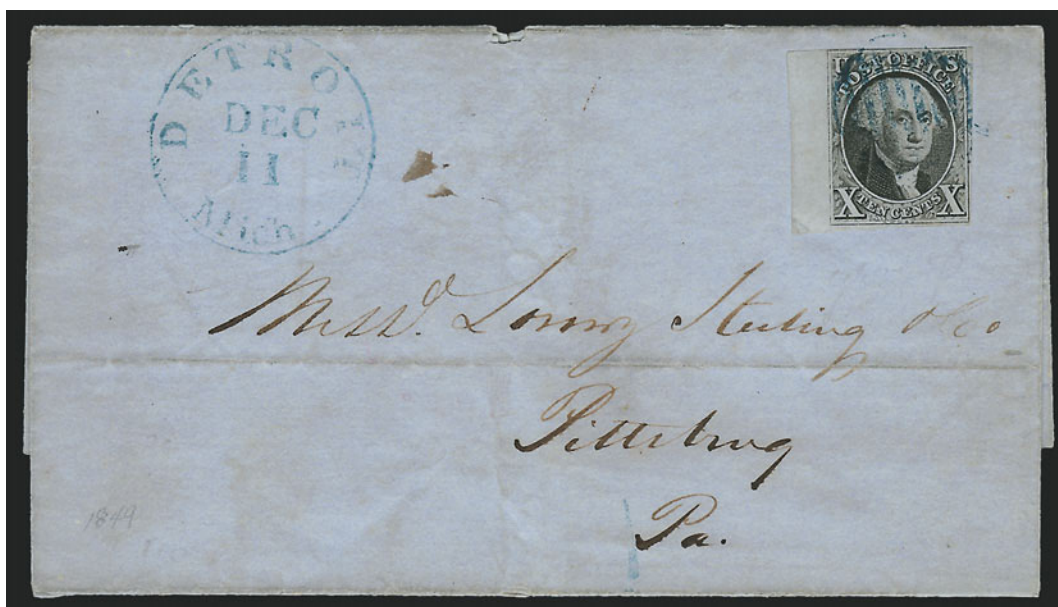 DETROIT
DEC
11
Mich.
U S
POST OFFICE
X TEN CENTS X
Messrs. Lorenz Sterling & Co
Pittsburg
Pa.
1849